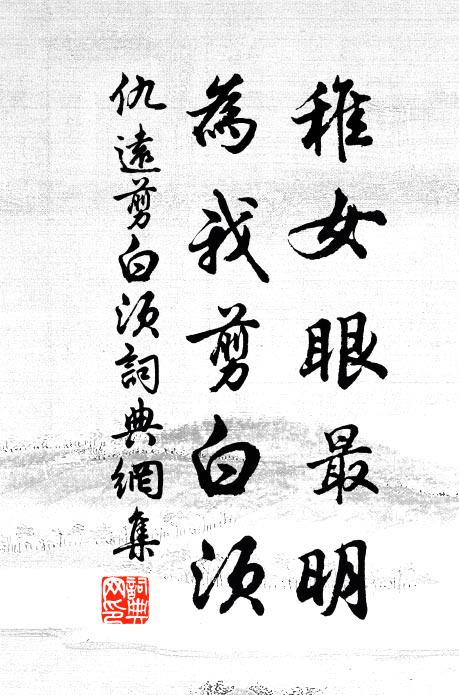 稚女眼最明
為我剪白須
仇遠剪白須詞典網集
詞典网印